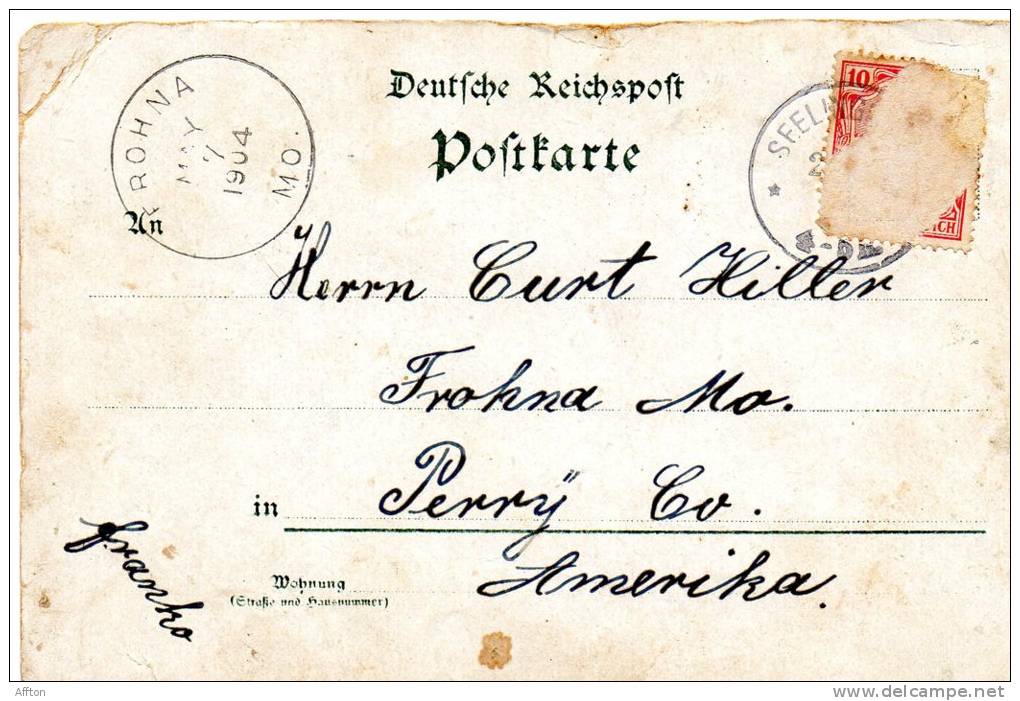 FROHNA
MAY
7
1904
MO.
Deutsche Reichspost
Postkarte
10
ICH
An
Herrn Curt Hiller
Frohna Mo.
in Perrÿ Co.
Amerika.
franko
Wohnung
(Straße und Hausnummer)
Affton
www.delcampe.net